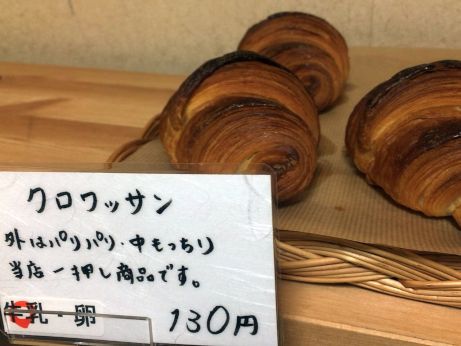 クロワッサン
外はパリパリ・中もっちり
当店一押し商品です。
牛乳・卵 130円